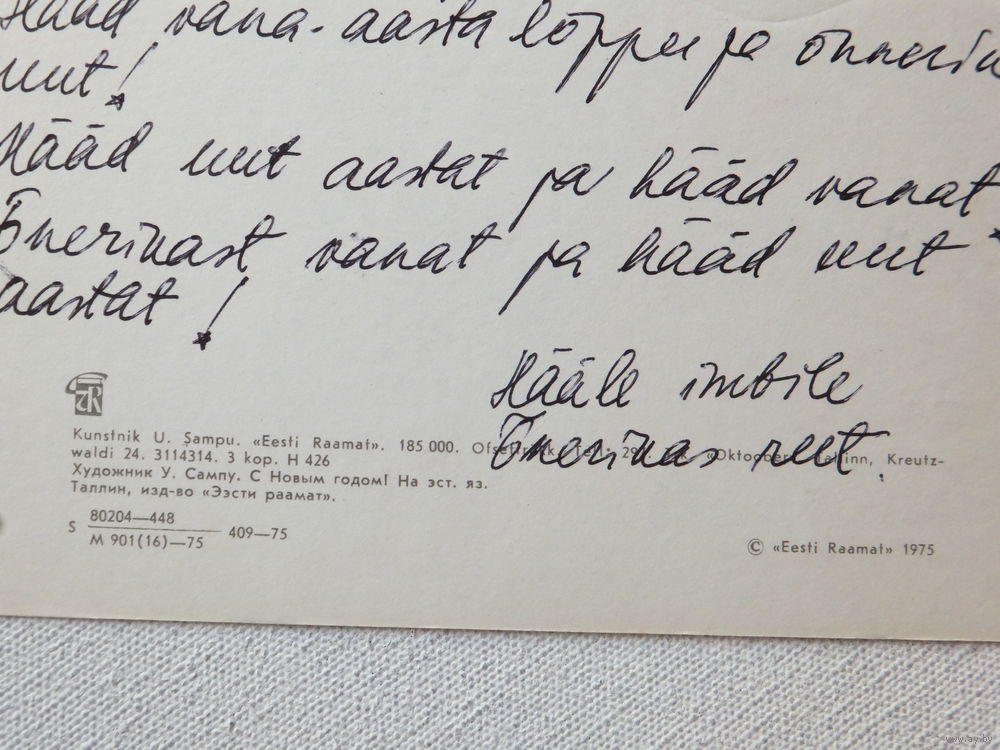 Hääd vana-aasta lõppu ja õnnerin
uut!
Hääd uut aastat ja hääd vanat
vanat ja hääd uut
aastat!
Hääle imbile
reet.
TR
Kunstnik U. Sampu. «Eesti Raamat». 185 000. «Oktoober», Tallinn, Kreutz-
waldi 24. 3114314. 3 kop. H 426
Художник У. Сампу. С Новым годом! На эст. яз.
Таллин, изд-во «Ээсти раамат».
S 80204—448
М 901(16)—75 409—75
© «Eesti Raamat» 1975
www.ay.by